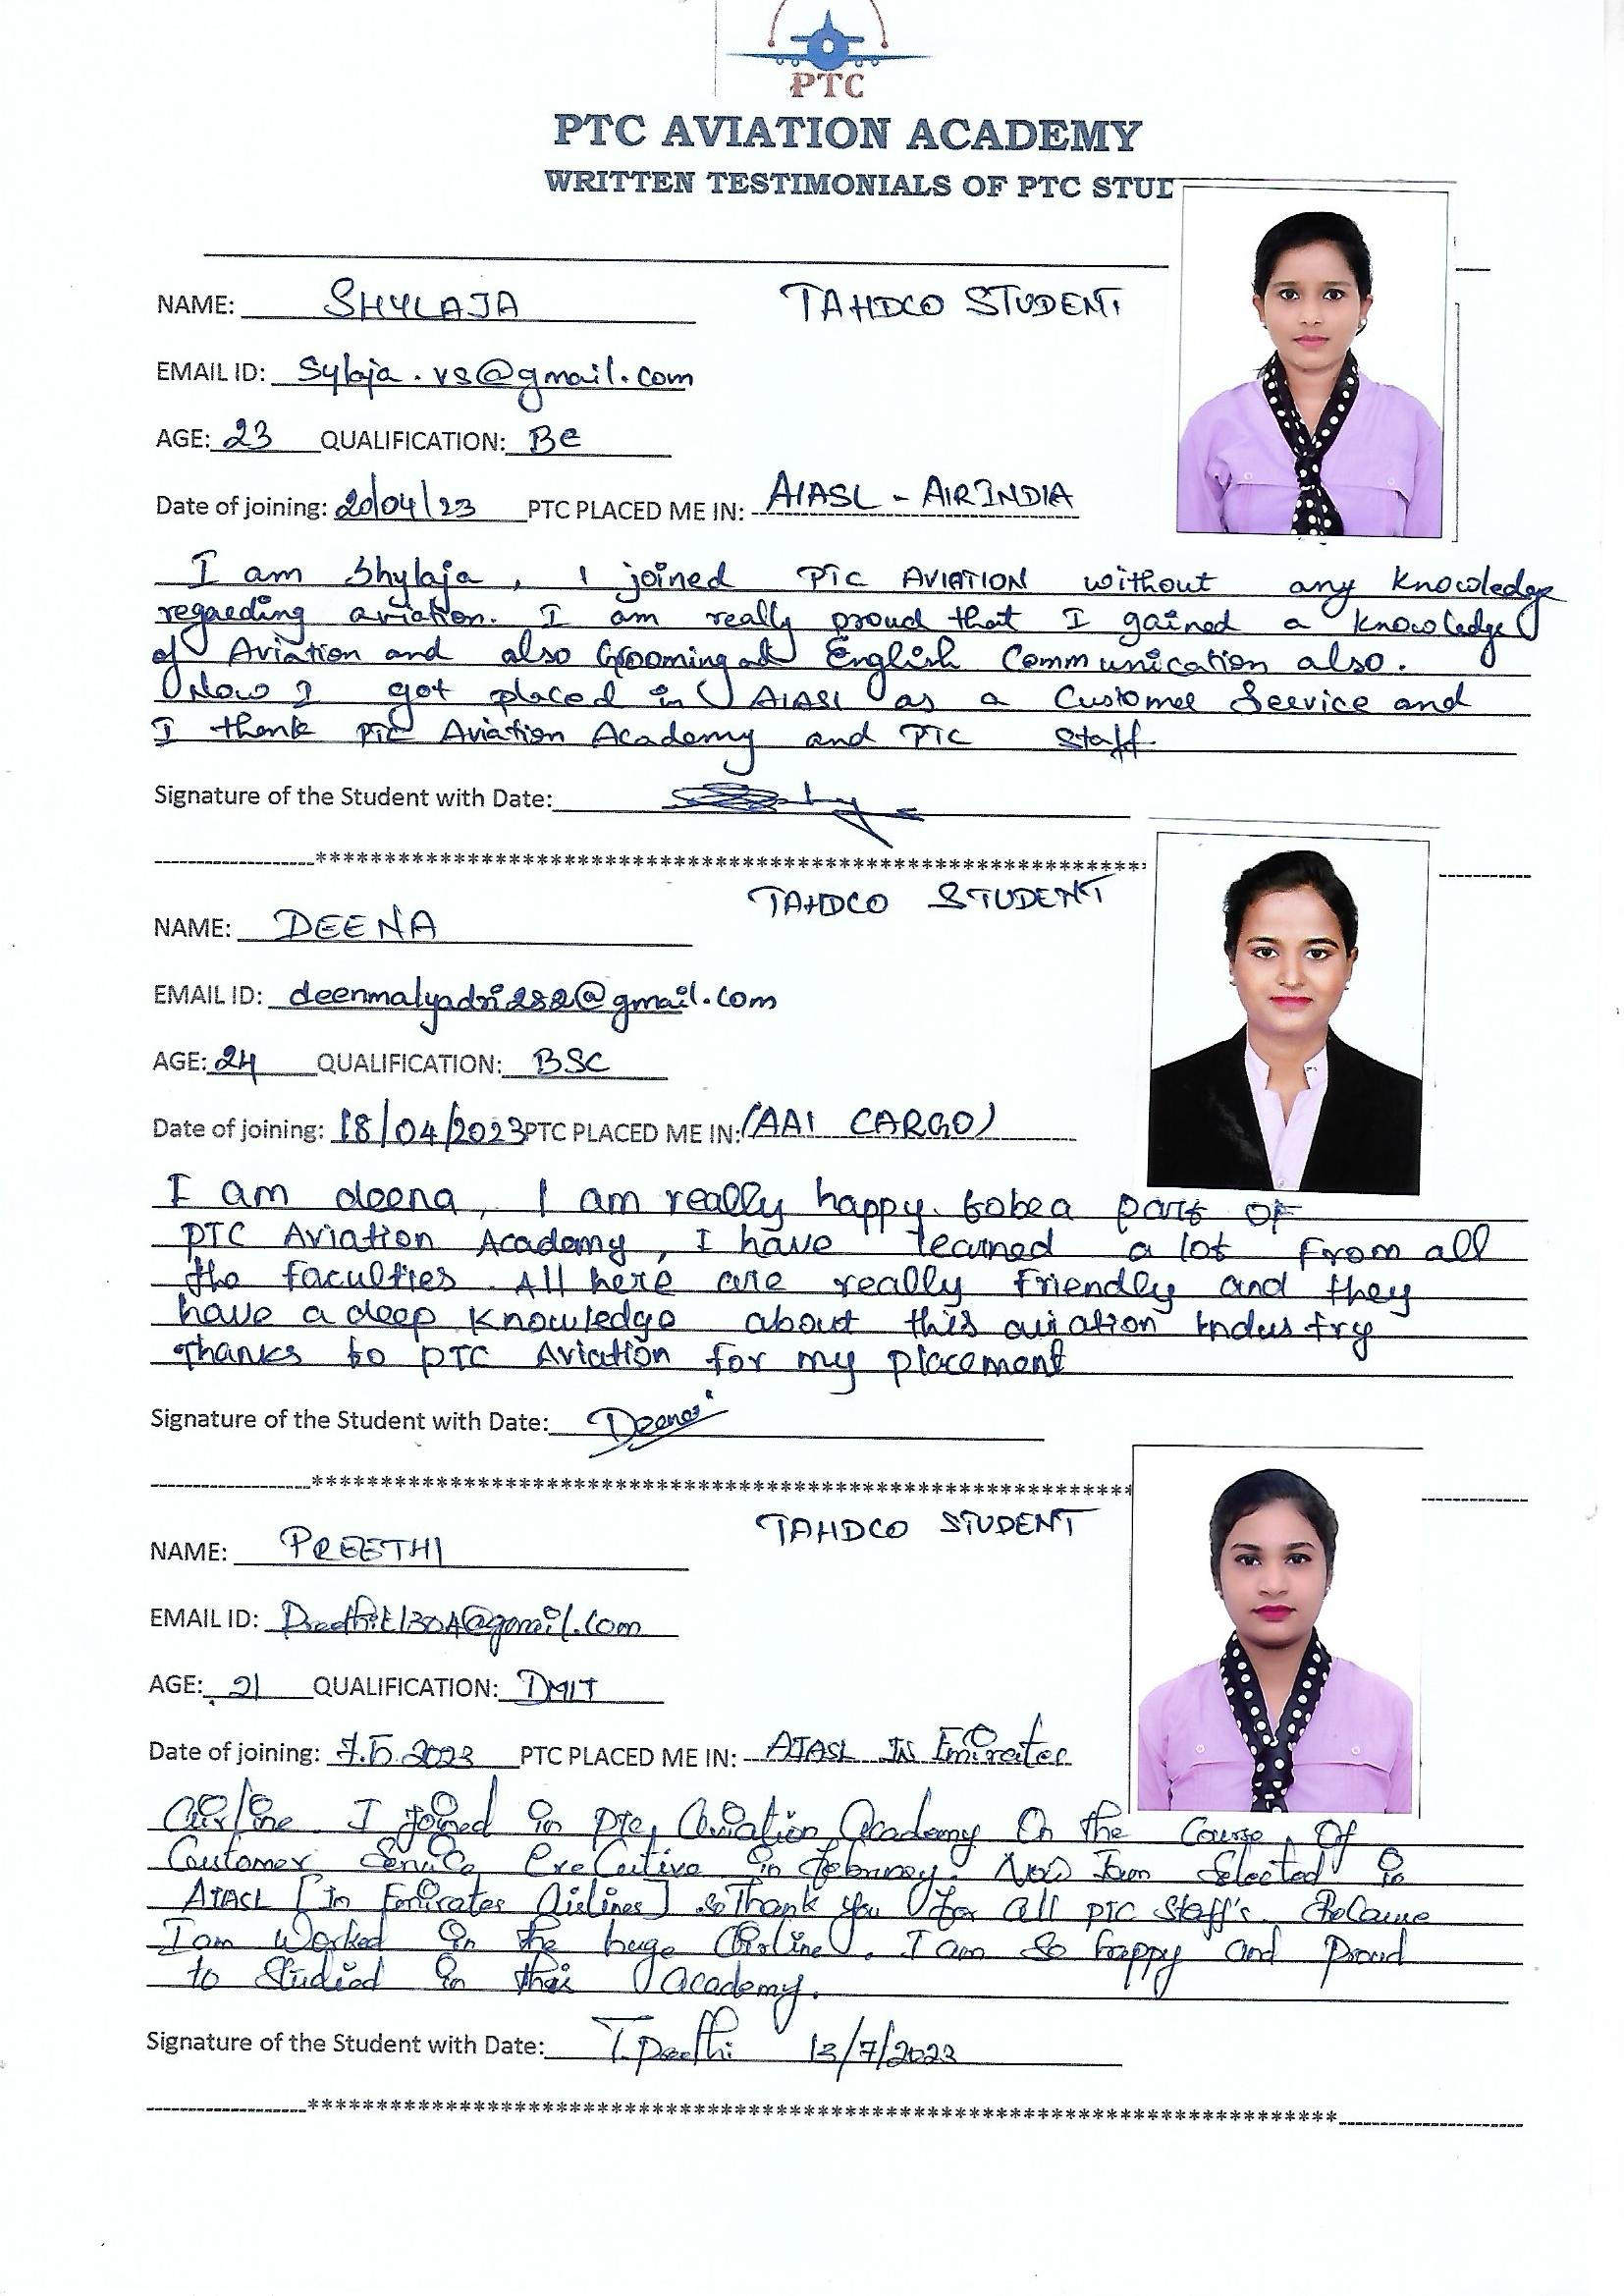 PTC
PTC AVIATION ACADEMY
WRITTEN TESTIMONIALS OF PTC STUD
NAME: SHYLAJA TAHDCO STUDENT
EMAIL ID: Sylaja.vs@gmail.com
AGE: 23 QUALIFICATION: BE
Date of joining: 20/04/23 PTC PLACED ME IN: AIASL - AIR INDIA
I am Shylaja, I joined PTC AVIATION without any knowledge
regarding aviation. I am really proud that I gained a knowledge
of Aviation and also Grooming and English Communication also.
Now I got placed in AIASL as a Customer Service and
I thank PTC Aviation Academy and PTC Staff
Signature of the Student with Date:
-------------------************************************************************
TAHDCO STUDENT
NAME: DEENA
EMAIL ID: deenmalyadri282@gmail.com
AGE: 24 QUALIFICATION: BSC
Date of joining: 18/04/2023 PTC PLACED ME IN: (AAI CARGO)
I am deena, I am really happy to be a part OF
PTC Aviation Academy, I have learned a lot from all
the faculties. All here are really friendly and they
have a deep knowledge about this aviation industry
Thanks to PTC Aviation for my placement
Signature of the Student with Date: Deena
-------------------************************************************************
TAHDCO STUDENT
NAME: PREETHI
EMAIL ID: @gmail.com
AGE: 21 QUALIFICATION: DMIT
Date of joining: 7.5.2023 PTC PLACED ME IN: AIASL IN Emirates
Airline. I joined in PTC, Aviation Academy On the Course Of
Customer Service Executive in February. Now I am Selected in
AIASL [In Emirates Airlines] so Thank you for all PTC Staff's. Because
I am Worked in the huge Airline. I am so happy and Proud
to Studied in this Academy.
Signature of the Student with Date: T.Preethi 13/7/2023
-------------------***************************************************************************----------------------